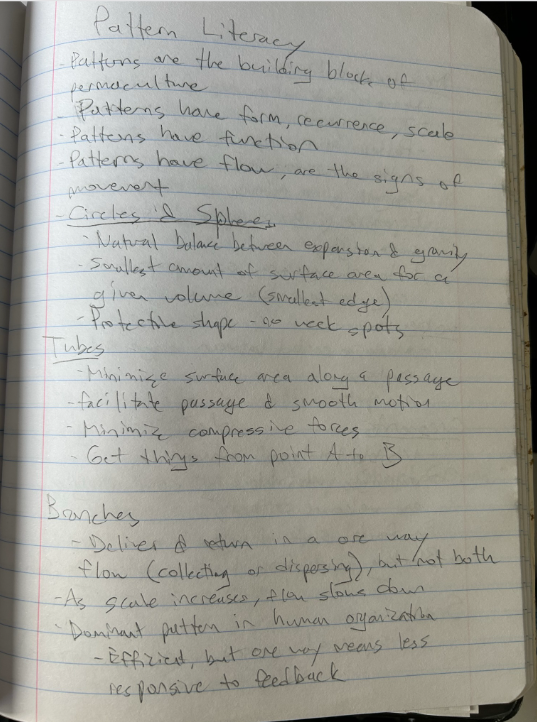 Pattern Literacy
- Patterns are the building blocks of
permaculture
- Patterns have form, recurrence, scale
- Patterns have function
- Patterns have flow, are the signs of
movement
- Circles & Spheres
- Natural balance between expansion & gravity
- Smallest amount of surface area for a
given volume (smallest edge)
- Protective shape - no weak spots
Tubes
- Minimize surface area along a passage
- facilitate passage & smooth motion
- Minimize compressive forces
- Get things from point A to B
Branches
- Deliver & return in a one way
flow (collecting or dispersing), but not both
- As scale increases, flow slows down
- Dominant pattern in human organization
- Efficient, but one way means less
responsive to feedback